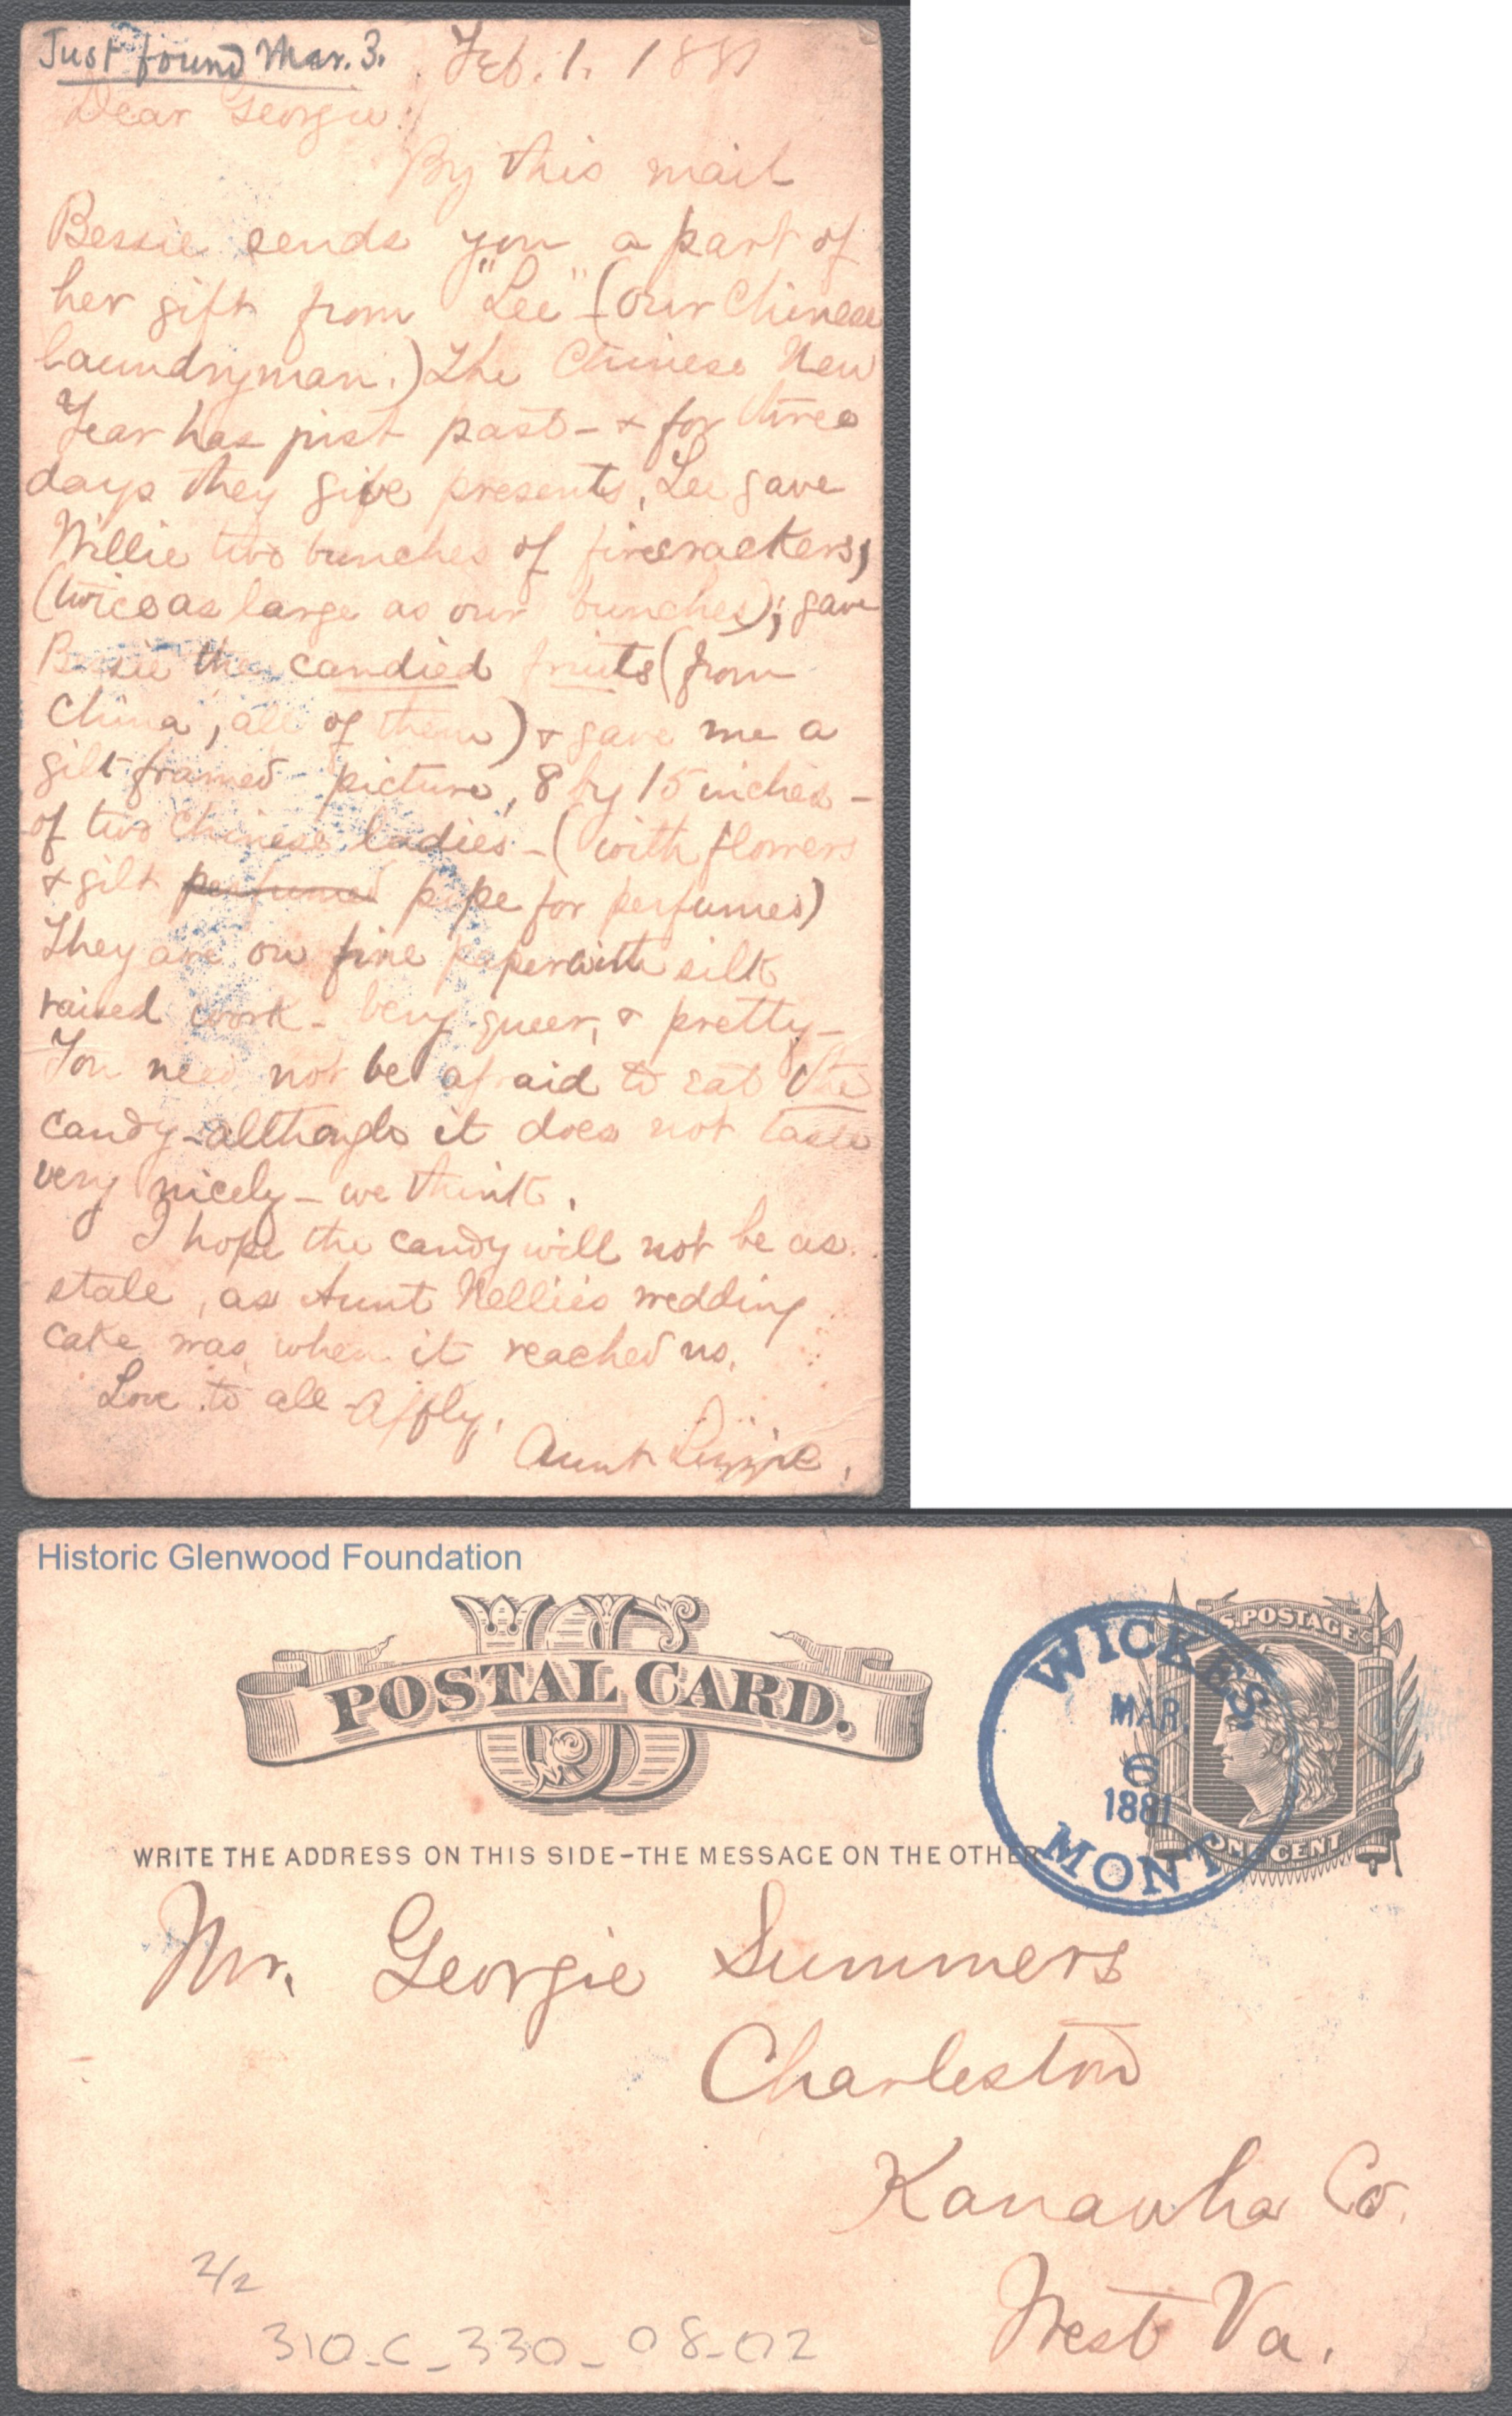 Just found Mar. 3. Feb. 1. 1881
Dear Georgie:
By this mail
Bessie sends you a part of
her gift from "Lee" - (our Chinese
laundryman.) The Chinese New
Year has just past - & for three
days they give presents. Lee gave
Willie two bunches of firecrackers,
(twice as large as our bunches); gave
Bessie the candied fruits (from
China, all of them) & gave me a
gilt framed picture, 8 by 15 inches -
of two Chinese ladies - (with flowers
& gilt perfumed pipe for perfumes)
They are on fine paper with silk
raised work - very queer, & pretty -
You need not be afraid to eat the
candy - although it does not taste
very nicely - we think.
I hope the candy will not be as
stale, as Aunt Nellie's wedding
cake was when it reached us.
Love to all - Affly,
Aunt Lizzie.
Historic Glenwood Foundation
US
POSTAL CARD.
WRITE THE ADDRESS ON THIS SIDE-THE MESSAGE ON THE OTHER
WICKES
MAR.
6
1881
MONT
S. POSTAGE
ONE CENT
Mr. Georgie Summers
Charleston
Kanawha Co.
West Va.
2/2
310-C-330-08-02